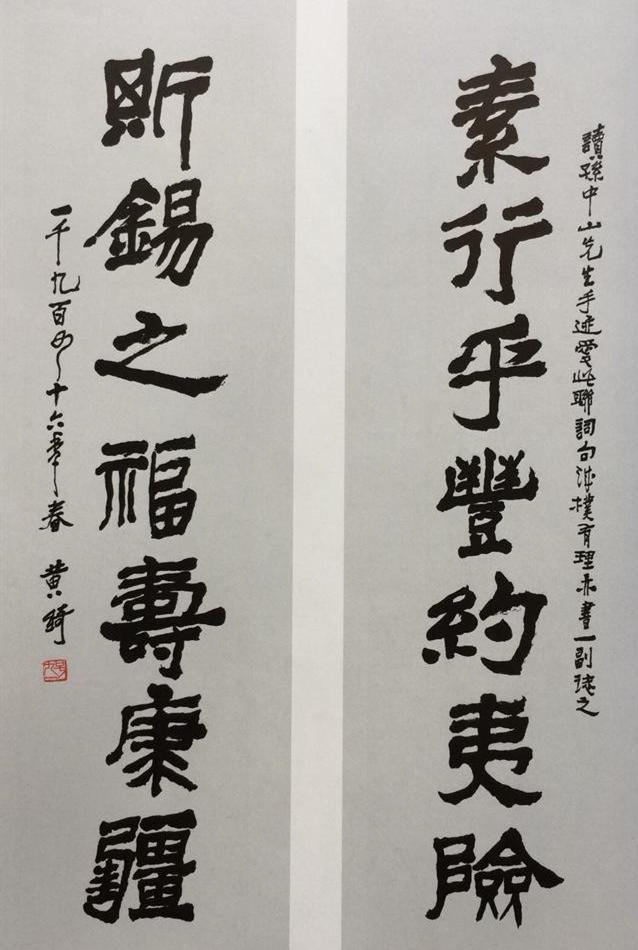 讀孫中山先生手迹愛此聯詞句樸有理亦書一副誌之
素行乎豐約夷險
斯錫之福壽康疆
一千九百八十六年春 黃綺